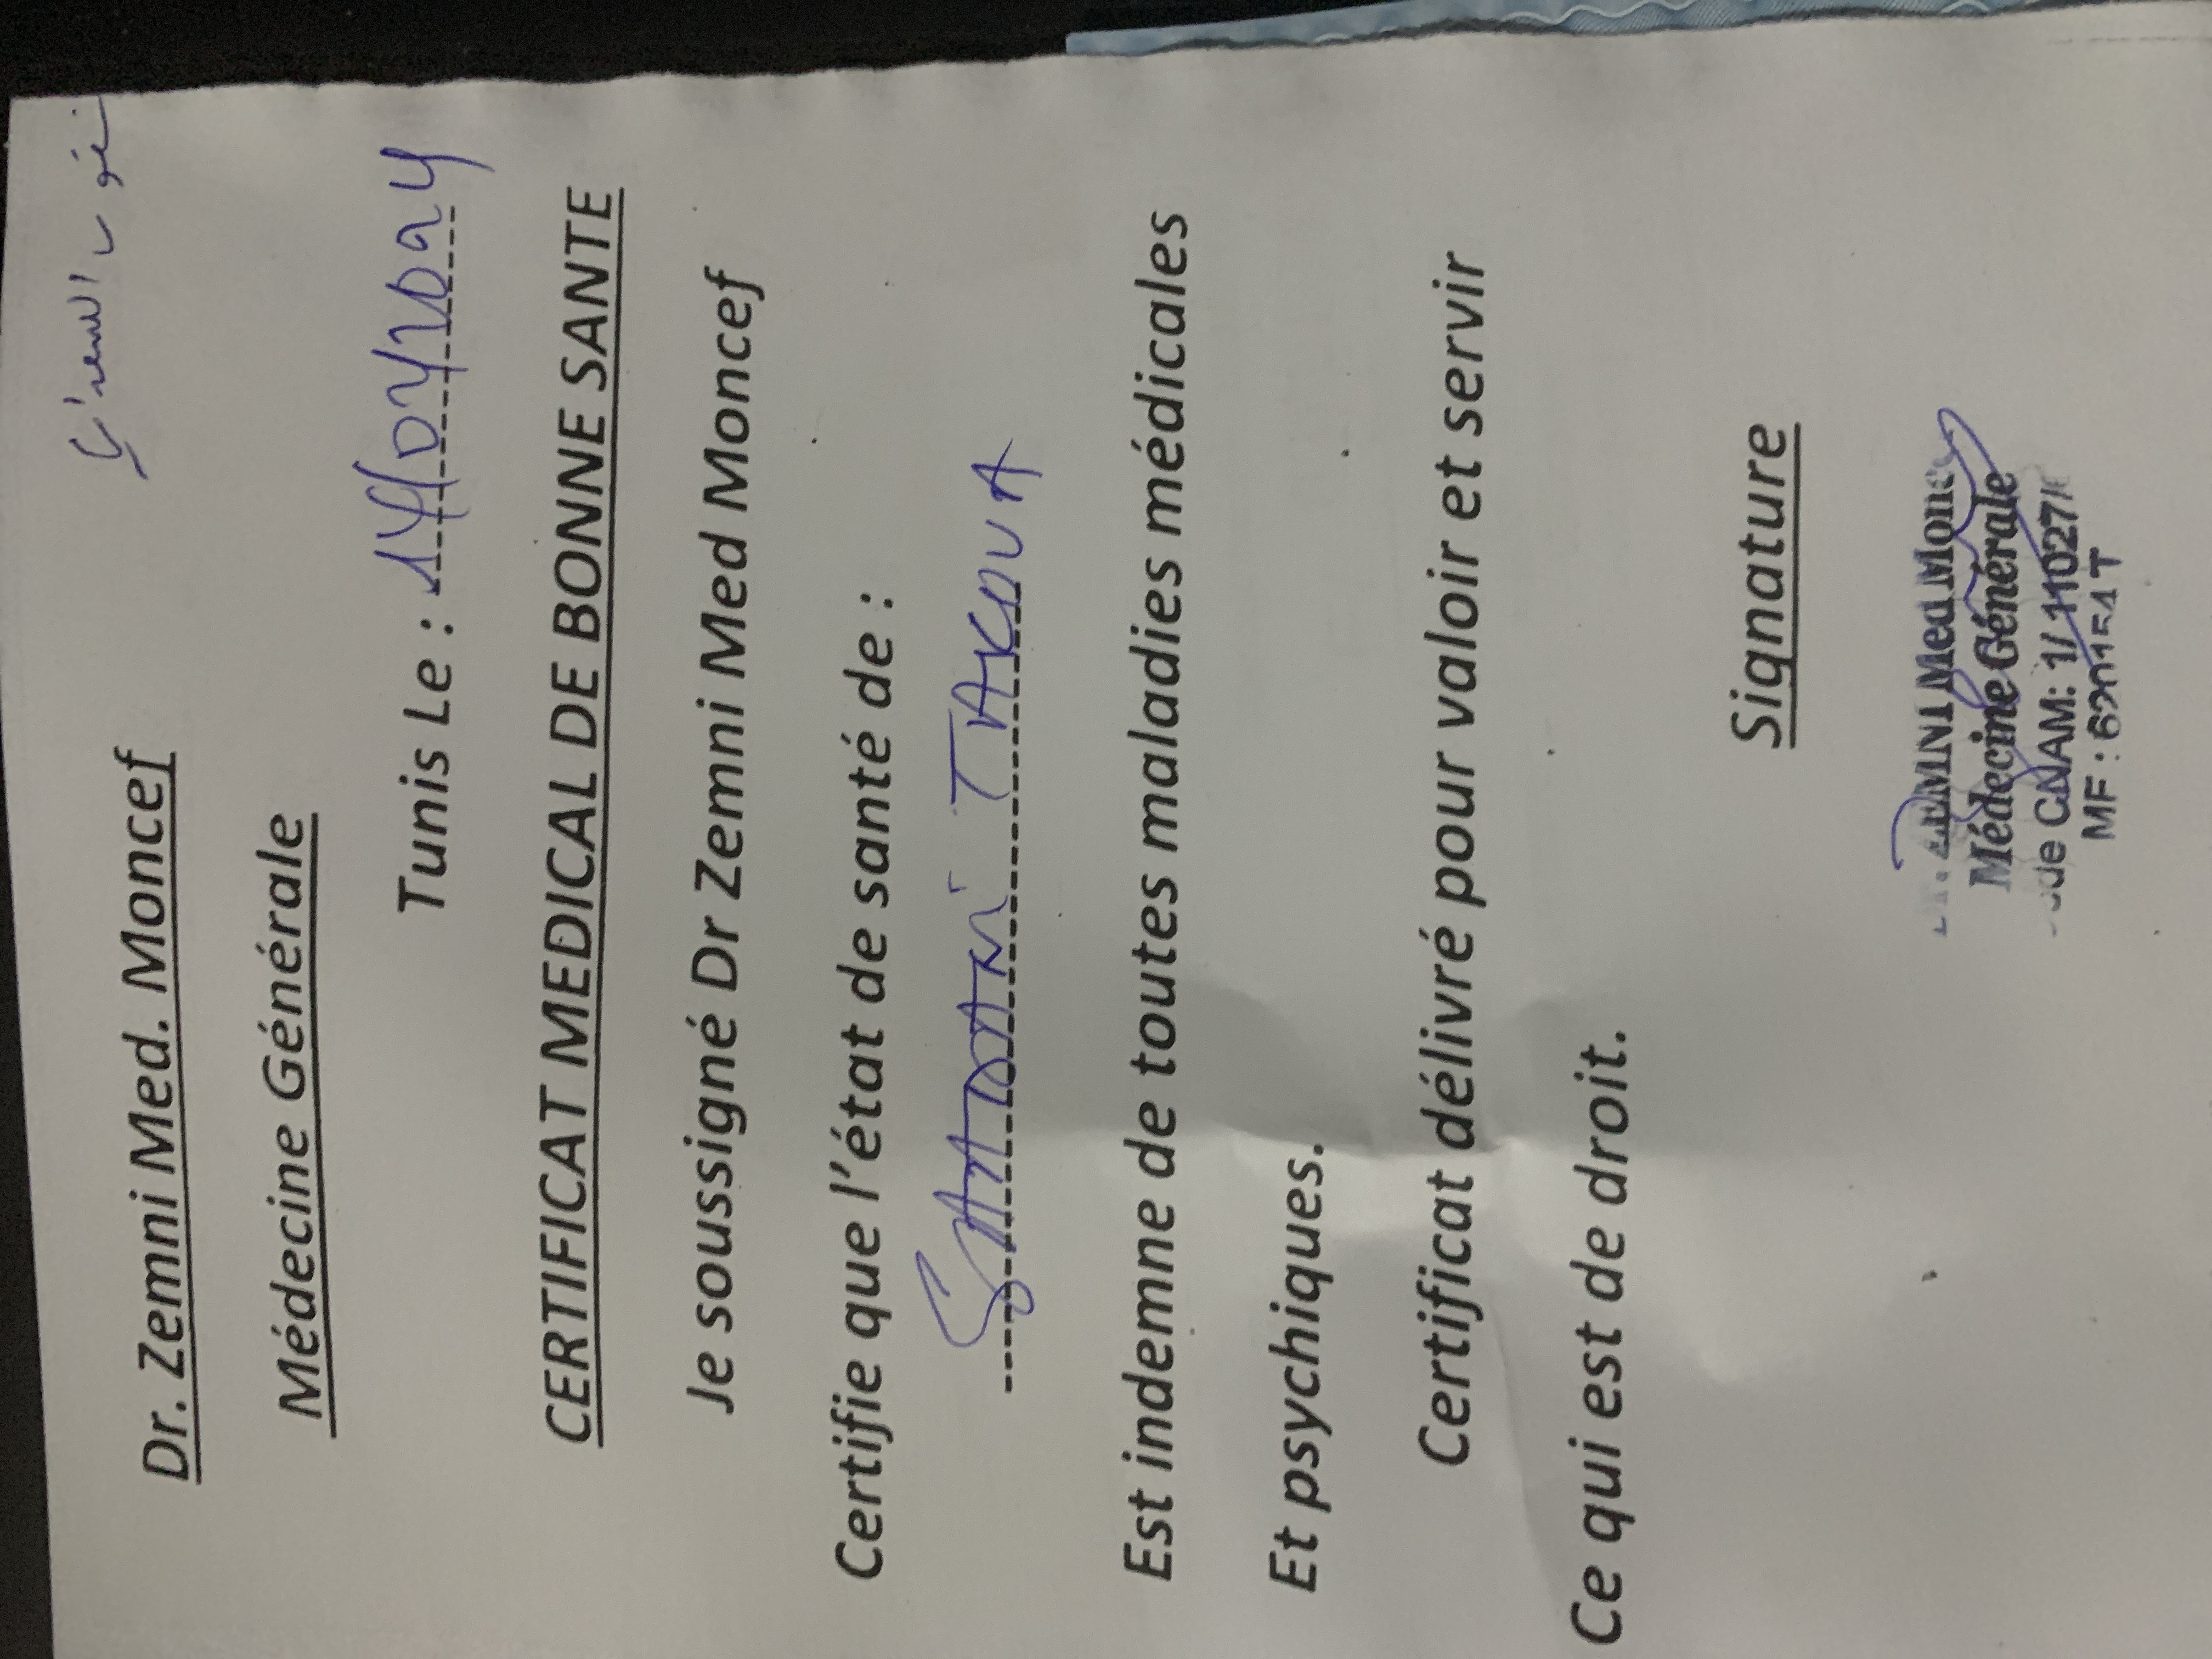 Dr. Zemni Med. Moncef
Médecine Générale
Tunis Le : 14/04/2024
CERTIFICAT MEDICAL DE BONNE SANTE
Je soussigné Dr Zemni Med Moncef
Certifie que l'état de santé de :
TAKOUA
Est indemne de toutes maladies médicales
Et psychiques.
Certificat délivré pour valoir et servir
Ce qui est de droit.
Signature
ZEMNI Med Monc
Médecine Générale
CNAM: 1/ 11027/
MF :